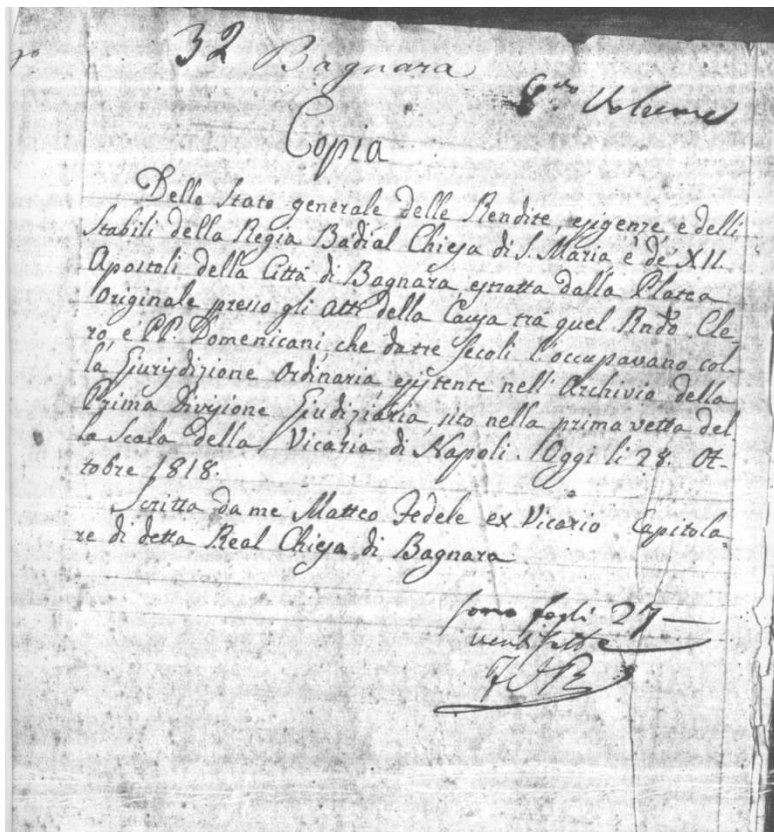 32 Bagnara
Volume
Copia
Dello Stato generale delle Rendite, esigenze e delli
Stabili della Regia Badial Chiesa di S. Maria, e de' XII.
Apostoli della Città di Bagnara estratta dalla Platea
Originale presso gli Atti della Causa trà quel Rndo Cle-
ro, e PP. Domenicani, che da tre secoli l'occupavano col-
la Giurisdizione Ordinaria esistente nell'Archivio della
Prima Divisione Giudiziaria, sito nella prima vetta del-
la Scala della Vicaria di Napoli. Oggi li 28. Ot-
tobre 1818.
Scritta da me Matteo Fedele ex Vicario Capitola
re di detta Real Chiesa di Bagnara
sono fogli 27
ventisette